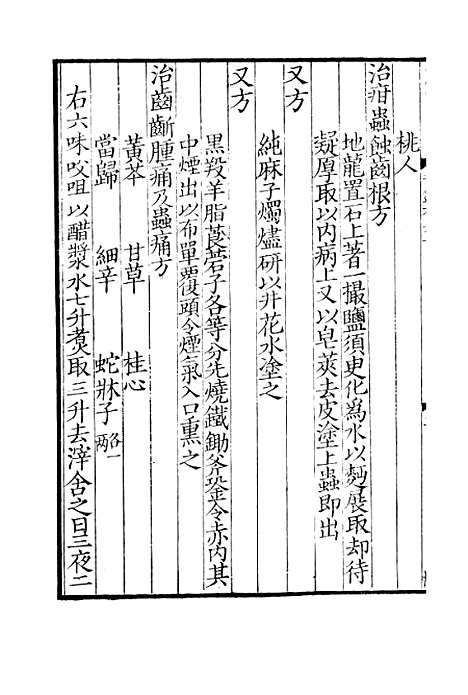 桃人
治疳蟲蝕齒根方
地龍置石上著一撮鹽須臾化為水以麪展取却待
凝厚取以內病上又以皂莢去皮塗上蟲即出
又方
純麻子燭燼研以井花水塗之
又方
黑羖羊脂莨菪子各等分先燒鐵鋤斧銎令赤內其
中煙出以布單覆頭令煙氣入口熏之
治齒齗腫痛及蟲痛方
黃芩 甘草 桂心
當歸 細辛 蛇牀子各一兩
右六味㕮咀以醋漿水七升煮取三升去滓含之日三夜二